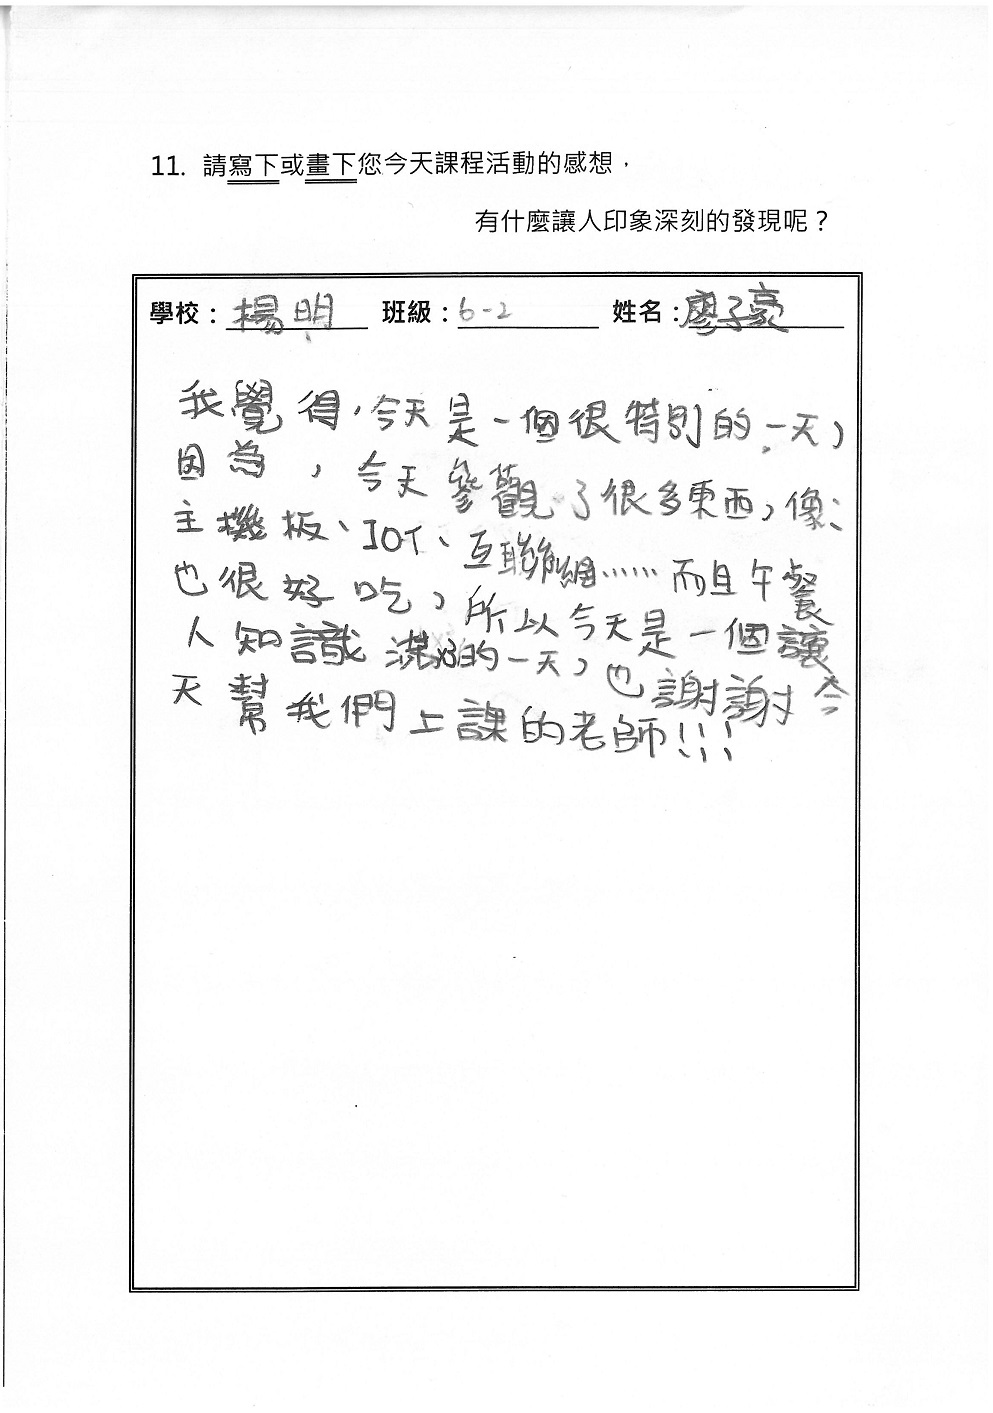 11. 請寫下或畫下您今天課程活動的感想，
有什麼讓人印象深刻的發現呢？
學校：楊明 班級：6-2 姓名：廖子豪
我覺得，今天是一個很特別的一天，
因為，今天參觀了很多東西，像：
主機板、IOT、互聯網……而且午餐
也很好吃，所以今天是一個讓
人知識滿的一天，也謝謝今
天幫我們上課的老師!!!